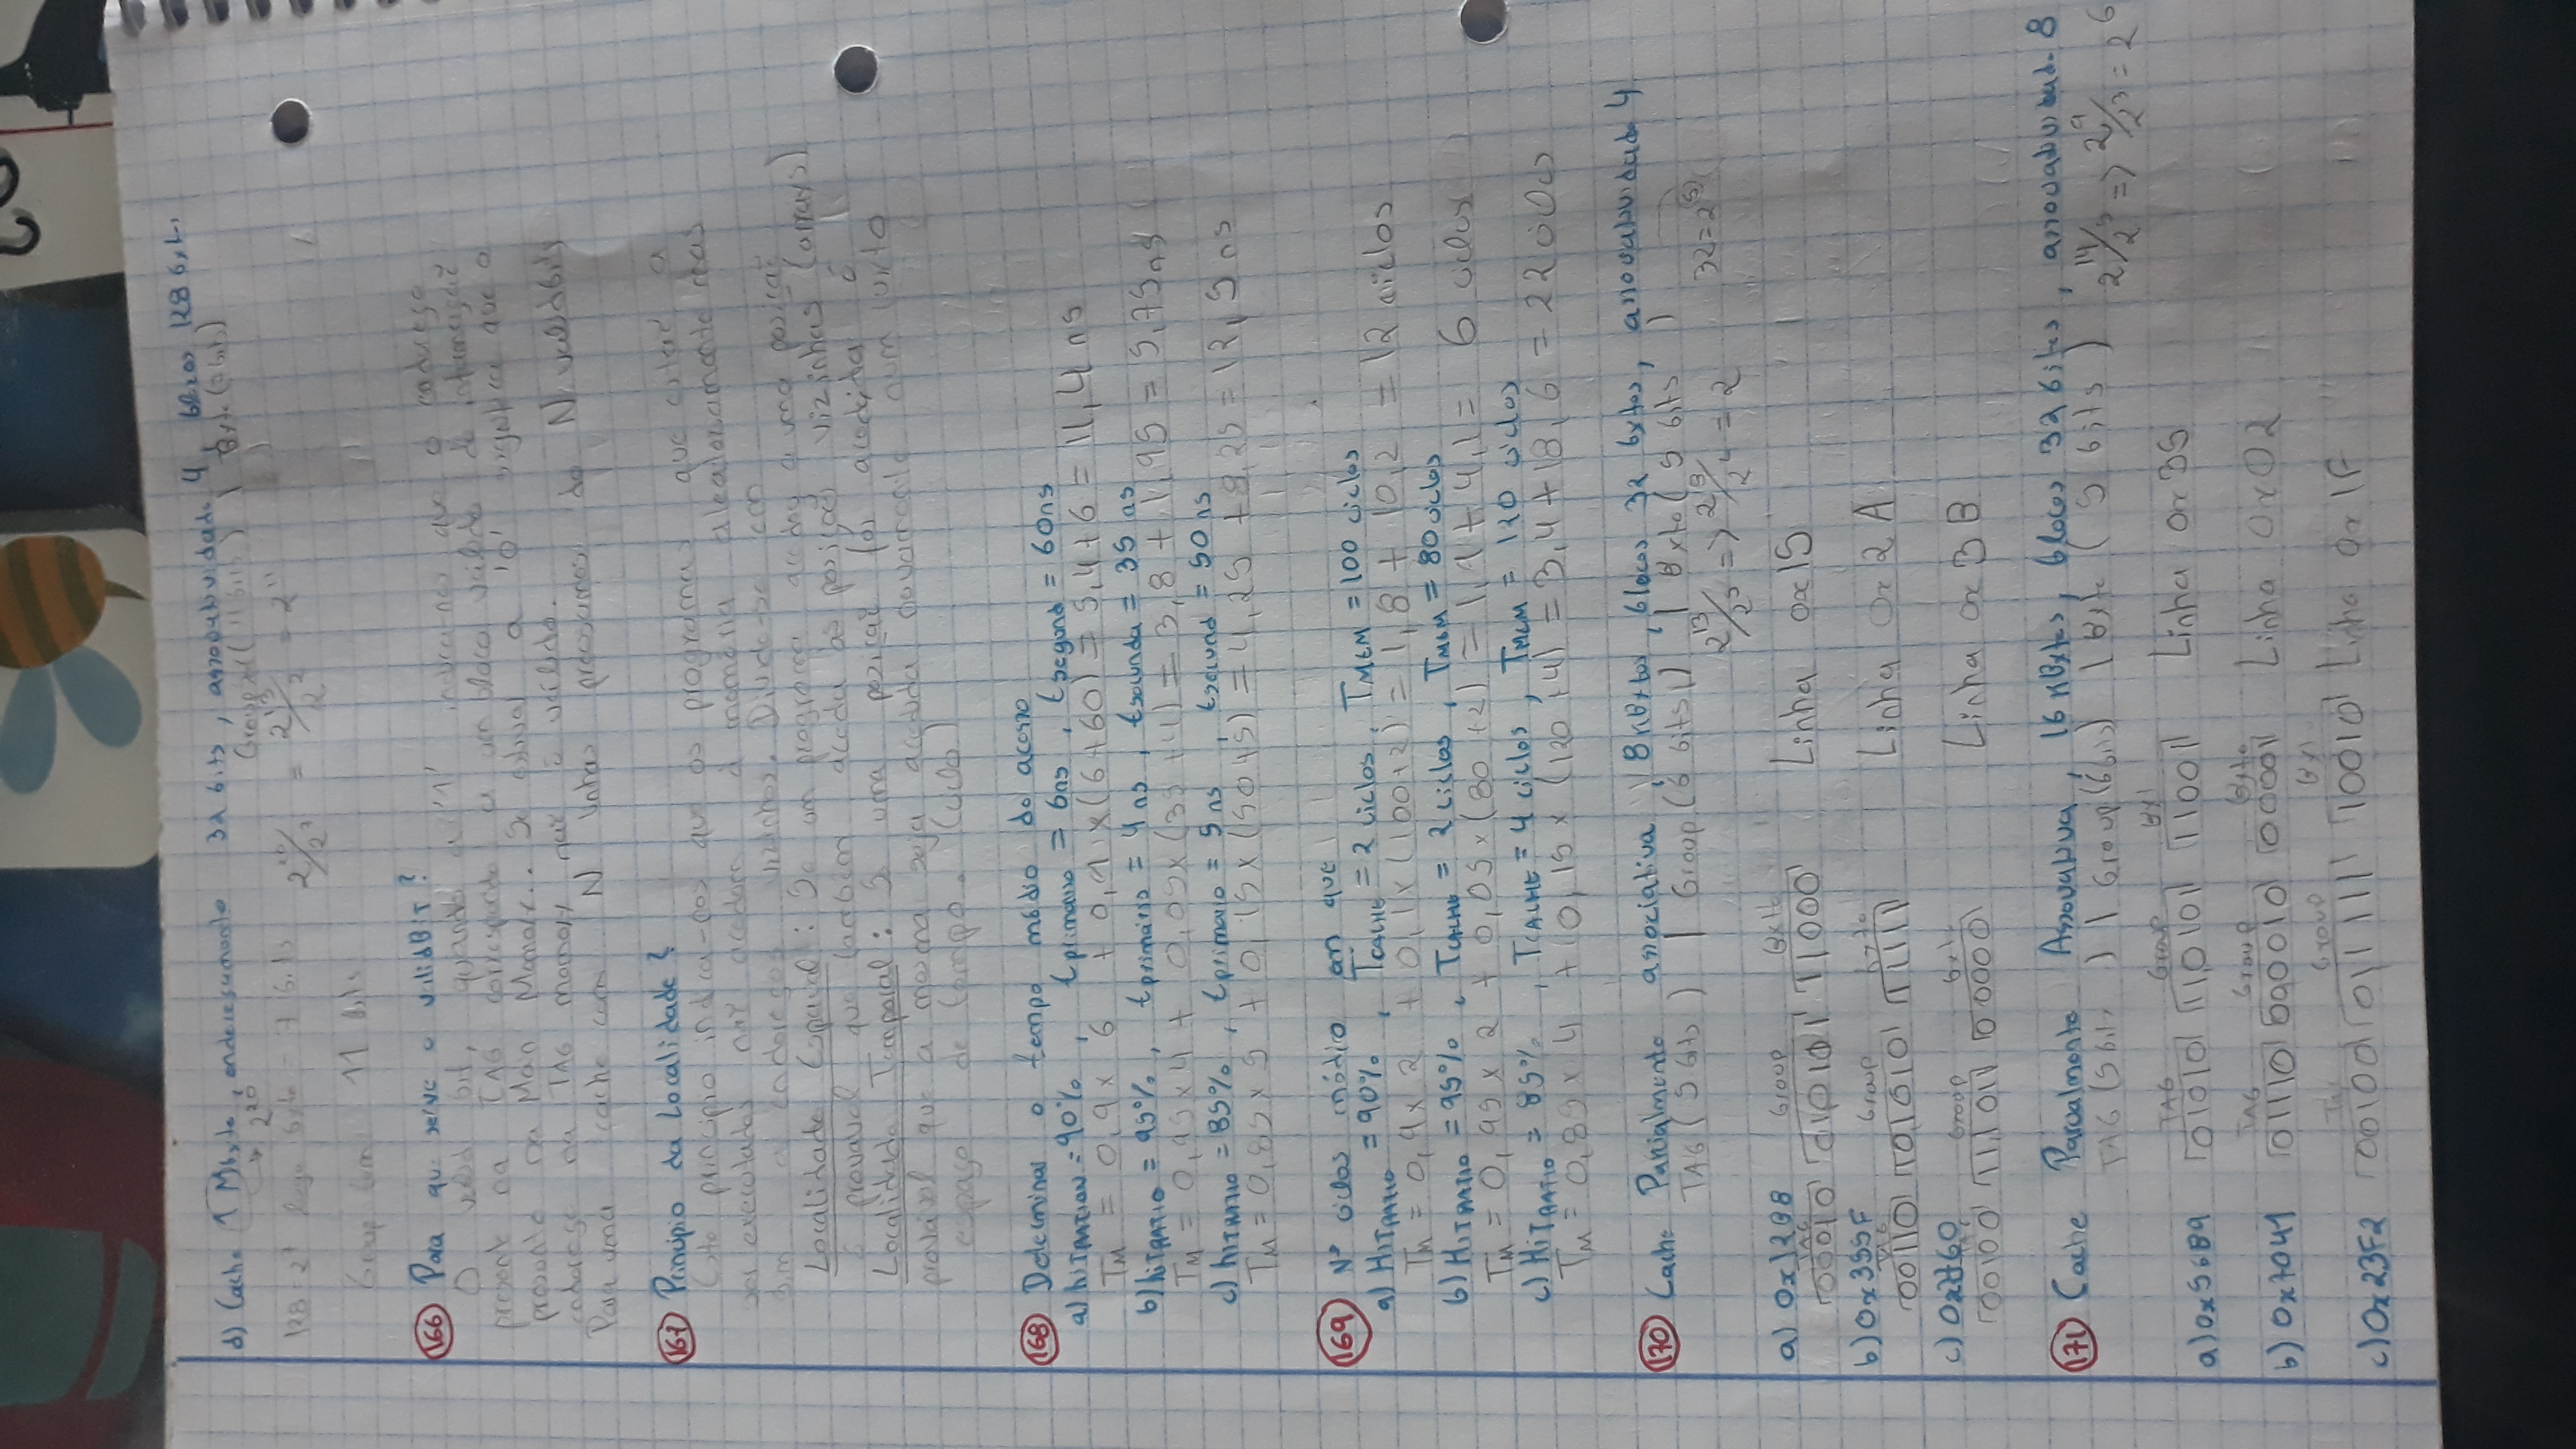 d) Cache 1 Mbyte, endereçamento 32 bits, associatividade 4, blocos 128 byt.
→ 2^20 Group (11 bits) | Byte (7 bits)
128 = 2^7 logo byte = 7 bits 2^20/2^7 = 2^13/2^2 = 2^11
Group com 11 bits
166 Para que serve o validBIT?
O valid bit, quando a '1' indica-nos que o endereço
presente na TAG corresponde a um bloco válido de informação
presente na Main Memory. Se estiver a '0' significa que o
endereço na TAG memory não é válido.
Para uma cache com N linhas precisamos de N validbits
167 Principio da Localidade?
Este principio indica-nos que os programas que estão a
ser executados não acedem à memória aleatoriamente mas
sim a endereços vizinhos. Divide-se em
Localidade Espacial: Se um programa acedeu a uma posição
é provavel que também aceda às posições vizinhas (arrays)
Localidade Temporal: Se uma posição foi acedida é
provável que a mesma seja acedida novamente num curto
espaço de tempo. (ciclo)
168 Determinar o tempo médio de acesso
a) hitRATION = 90%, tprimário = 6ns, tsegund = 60ns
TM = 0,9 x 6 + 0,1 x (6+60) = 5,4 + 6 = 11,4 ns
b) hitRATIO = 95%, tprimário = 4 ns, tsecunda = 35 ns
TM = 0,95 x 4 + 0,05 x (35 + 4) = 3,8 + 1,95 = 5,75 ns
c) hitRATIO = 85%, tprimario = 5 ns, tsecund = 50 ns
TM = 0,85 x 5 + 0,15 x (50+5) = 4,25 + 8,25 = 12,5 ns
169 Nº ciclos médio em que
a) HITRATIO = 90%, TCACHE = 2 ciclos, TMEM = 100 ciclos
TM = 0,9 x 2 + 0,1 x (100+2) = 1,8 + 10,2 = 12 ciclos
b) HITRATIO = 95%, TCACHE = 2 ciclos, TMEM = 80 ciclos
TM = 0,95 x 2 + 0,05 x (80 + 2) = 1,9 + 4,1 = 6 ciclos
c) HITRATIO = 85%, TCACHE = 4 ciclos, TMEM = 120 ciclos
TM = 0,85 x 4 + 0,15 x (120 + 4) = 3,4 + 18,6 = 22 ciclos
170 Cache Parcialmente associativa, 8KBytes, blocos 32 bytes, associatividade 4
TAG (5 bits) | Group (6 bits) | Byte (5 bits)
2^13/2^5 => 2^8/2^4 = 2 32 = 2^5
a) 0x12B8 Group Byte
TAG
00010 010101 11000 Linha 0x15
b) 0x355F Group Byte
TAG
00110 101010 11111 Linha 0x2A
c) 0x2760 Group Byte
00100 111011 00000 Linha 0x3B
171 Cache Parcialmente Associativa, 16 KBytes, blocos 32 bites, associatividade 8
TAG (5 bits) | Group (6 bits) | Byte (5 bits) 2^14/2^5 => 2^9/2^3 = 2^6
TAG Group Byt
a) 0x56B9 01010 110101 11001 Linha 0x35
TAG Group Byte
b) 0x7041 01110 000010 00001 Linha 0x02
Group Byt
c) 0x23F2 00100 011111 10010 Linha 0x1F